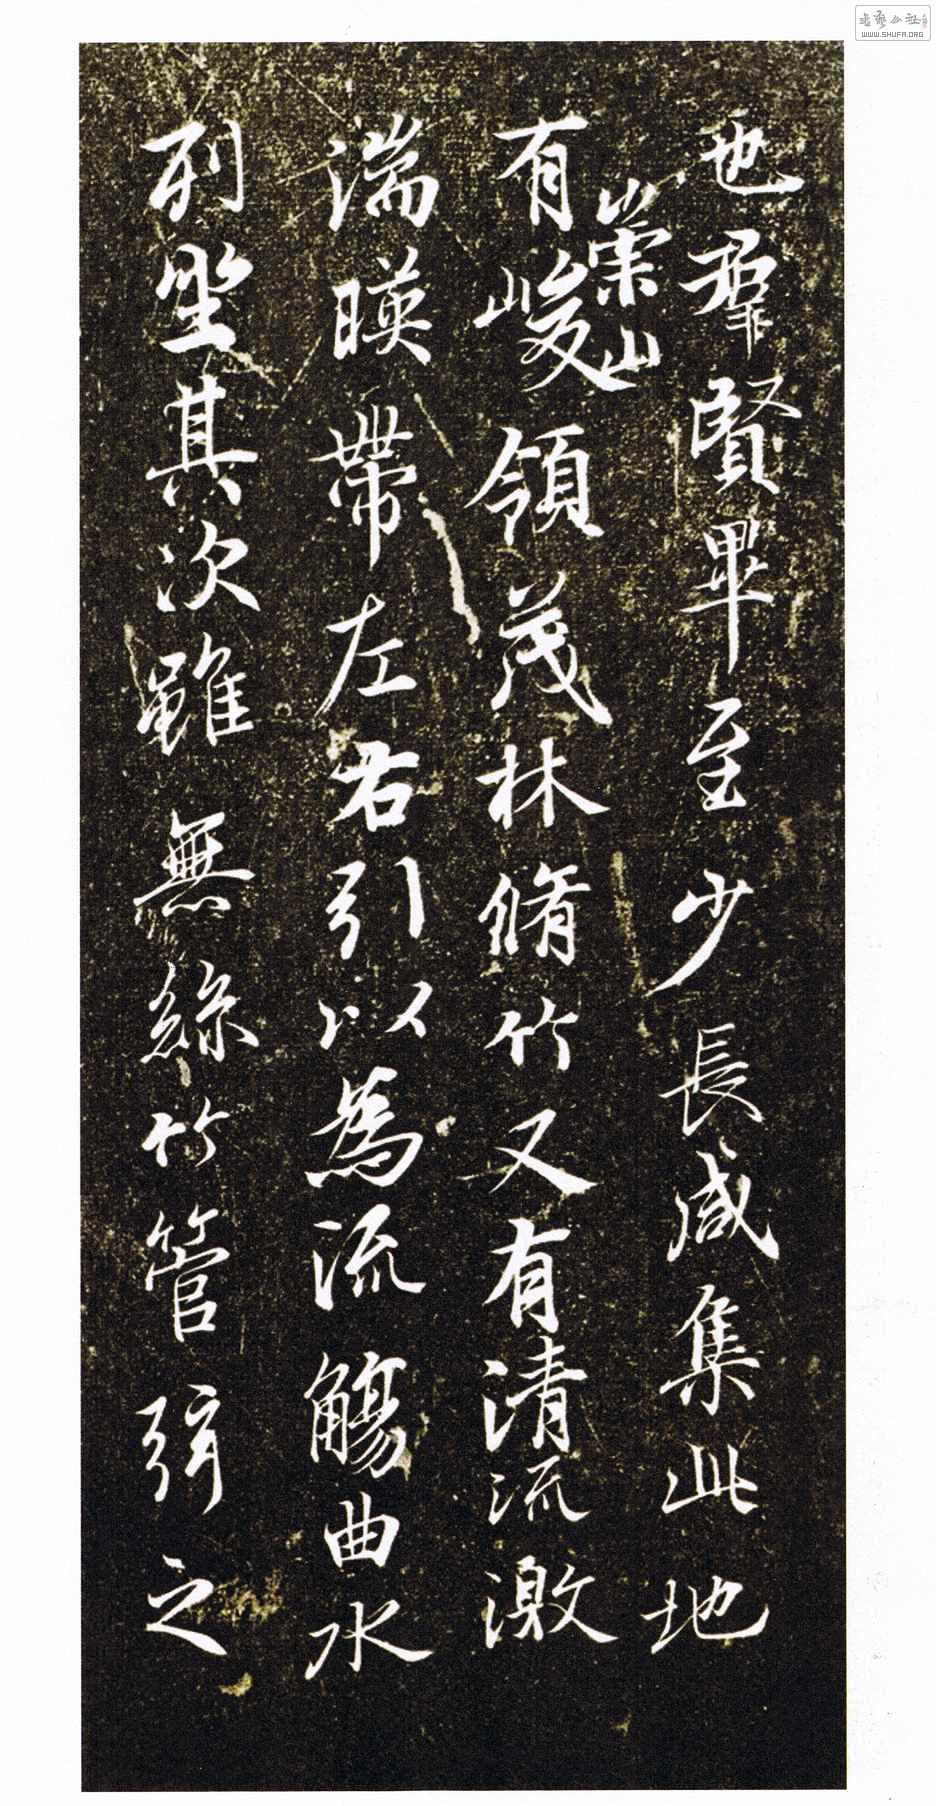 也羣賢畢至少長咸集此地
有崇山峻領茂林脩竹又有清流激
湍暎帶左右引以為流觴曲水
列坐其次雖無絲竹管弦之
WWW.SHUFA.ORG